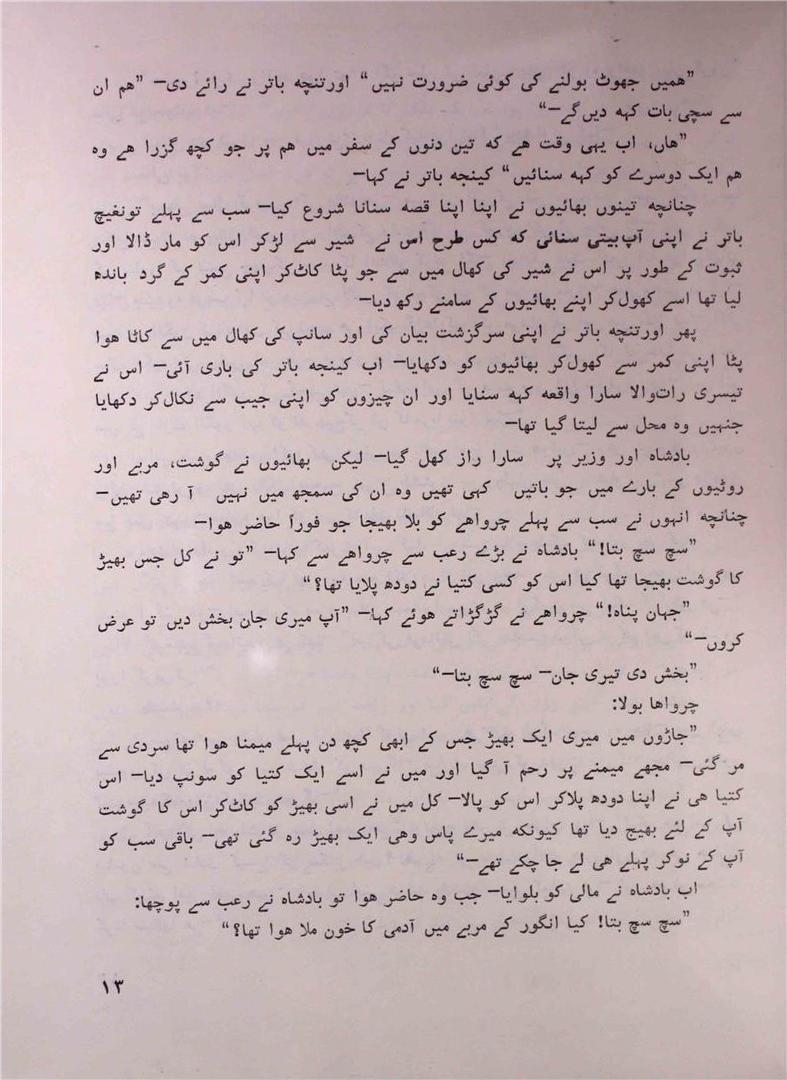 ”ہمیں جھوٹ بولنے کی کوئی ضرورت نہیں“ اورتنچہ باتر نے رائے دی— ”ہم ان
سے سچی بات کہہ دیں‌گے—“
”ہاں، اب یہی وقت ہے کہ تین دنوں کے سفر میں ہم پر جو کچھ گزرا ہے وہ
ہم ایک دوسرے کو کہہ سنائیں“ کینجہ باتر نے کہا—
چنانچہ تینوں بھائیوں نے اپنا اپنا قصہ سنانا شروع کیا— سب سے پہلے تونغیچ
باتر نے اپنی آپ‌بیتی سنائی کہ کس طرح اس نے شیر سے لڑکر اس کو مار ڈالا اور
ثبوت کے طور پر اس نے شیر کی کھال میں سے جو پٹا کاٹ‌کر اپنی کمر کے گرد باندھ
لیا تھا اسے کھول‌کر اپنے بھائیوں کے سامنے رکھ دیا—
پھر اورتنچہ باتر نے اپنی سرگزشت بیان کی اور سانپ کی کھال میں سے کاٹا ہوا
پٹا اپنی کمر سے کھول‌کر بھائیوں کو دکھایا— اب کینجہ باتر کی باری آئی— اس نے
تیسری رات‌والا سارا واقعہ کہہ سنایا اور ان چیزوں کو اپنی جیب سے نکال‌کر دکھایا
جنہیں وہ محل سے لیتا گیا تھا—
بادشاہ اور وزیر پر سارا راز کھل گیا— لیکن بھائیوں نے گوشت، مربے اور
روٹیوں کے بارے میں جو باتیں کہی تھیں وہ ان کی سمجھ میں نہیں آ رہی تھیں—
چنانچہ انہوں نے سب سے پہلے چرواہے کو بلا بھیجا جو فوراً حاضر ہوا—
”سچ سچ بتا!“ بادشاہ نے بڑے رعب سے چرواہے سے کہا— ”تو نے کل جس بھیڑ
کا گوشت بھیجا تھا کیا اس کو کسی کتیا نے دودھ پلایا تھا؟“
”جہان پناہ!“ چرواہے نے گڑگڑاتے ہوئے کہا— ”آپ میری جان بخش دیں تو عرض
کروں—“
”بخش دی تیری جان— سچ سچ بتا—“
چرواہا بولا:
”جاڑوں میں میری ایک بھیڑ جس کے ابھی کچھ دن پہلے میمنا ہوا تھا سردی سے
مر گئی— مجھے میمنے پر رحم آ گیا اور میں نے اسے ایک کتیا کو سونپ دیا— اس
کتیا ہی نے اپنا دودھ پلاکر اس کو پالا— کل میں نے اسی بھیڑ کو کاٹ‌کر اس کا گوشت
آپ کے لئے بھیج دیا تھا کیونکہ میرے پاس وہی ایک بھیڑ رہ گئی تھی— باقی سب کو
آپ کے نوکر پہلے ہی لے جا چکے تھے—“
اب بادشاہ نے مالی کو بلوایا— جب وہ حاضر ہوا تو بادشاہ نے رعب سے پوچھا:
”سچ سچ بتا! کیا انگور کے مربے میں آدمی کا خون ملا ہوا تھا؟“
۱۳